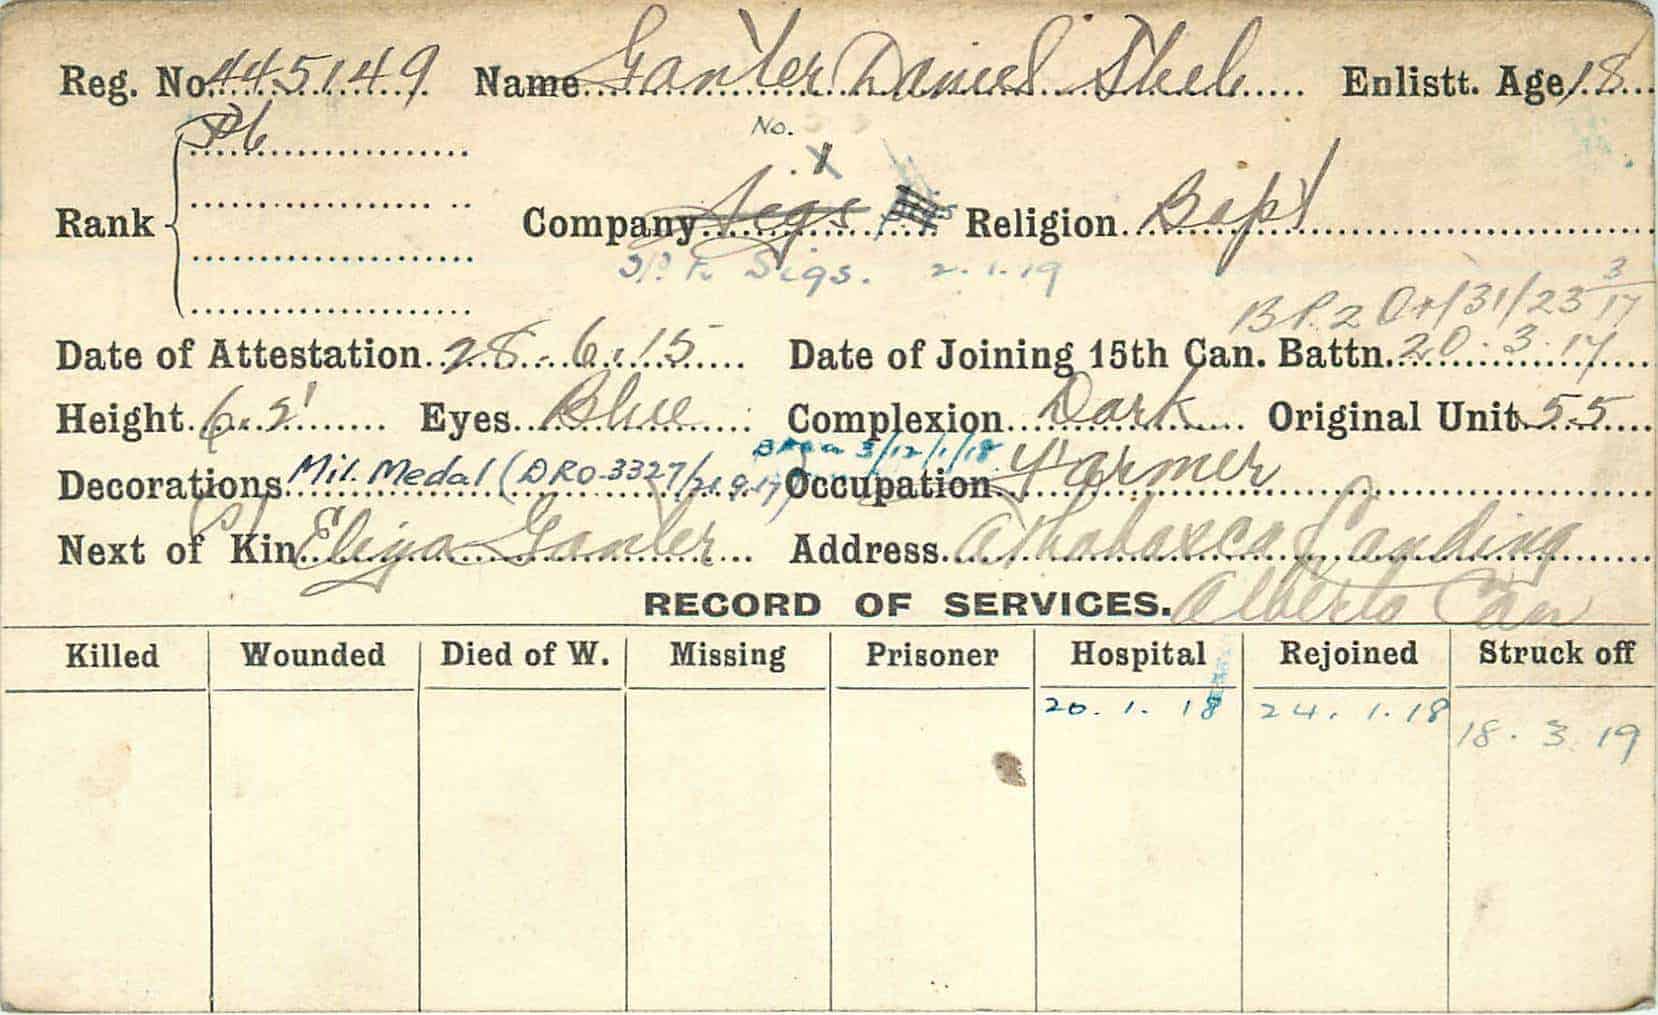 Reg. No. 445149 Name Ganter Daniel Enlistt. Age 18
No.
Rank
Company Sigs Religion Bapt
Sigs. 2.1.19
B P. 2 O 4/31/23 3/17
Date of Attestation 28.6.15 Date of Joining 15th Can. Battn. 20.3.17
Height 6.2' Eyes Blue Complexion Dark Original Unit 55
3/12/1/18
Decorations Mil. Medal (DRO-3327/21.9.17) Occupation Farmer
Next of Kin Eliza Ganter Address Athabasca Landing
RECORD OF SERVICES. Alberta Can
Killed Wounded Died of W. Missing Prisoner Hospital Rejoined Struck off
20.1.18 24.1.18 18.3.19